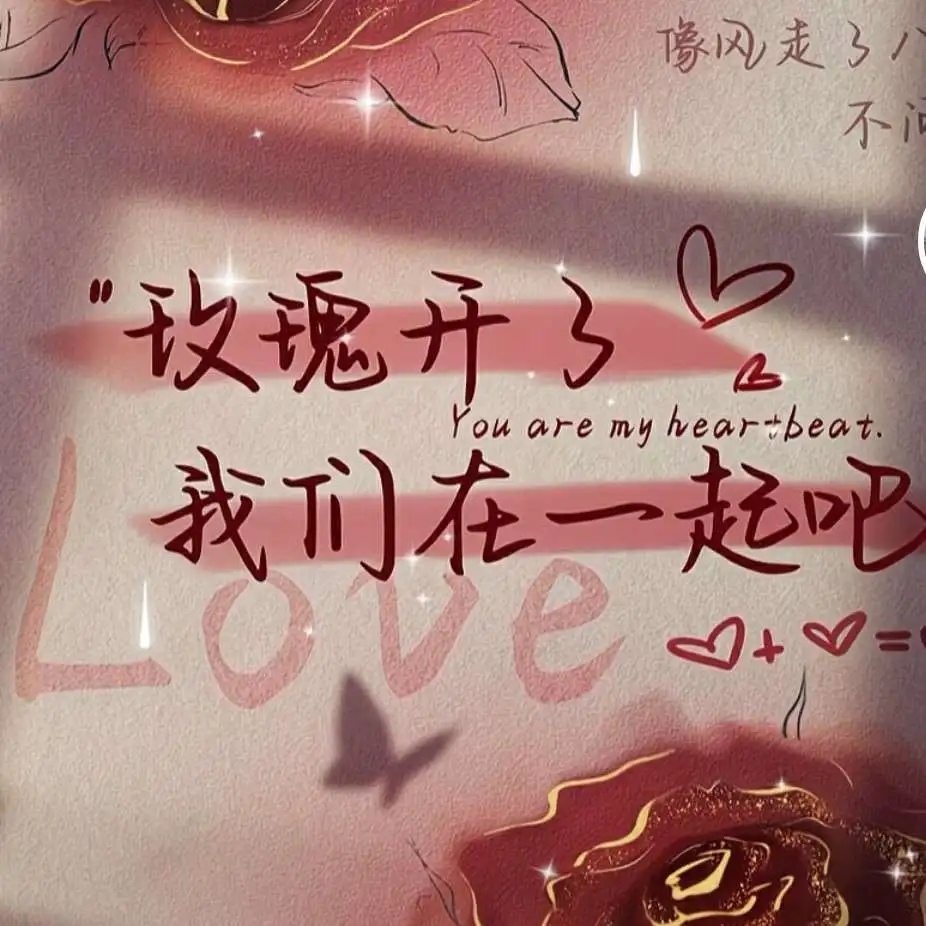 像风走了八
不问
"玫瑰开了
You are my heartbeat.
我们在一起吧
Love
+ =